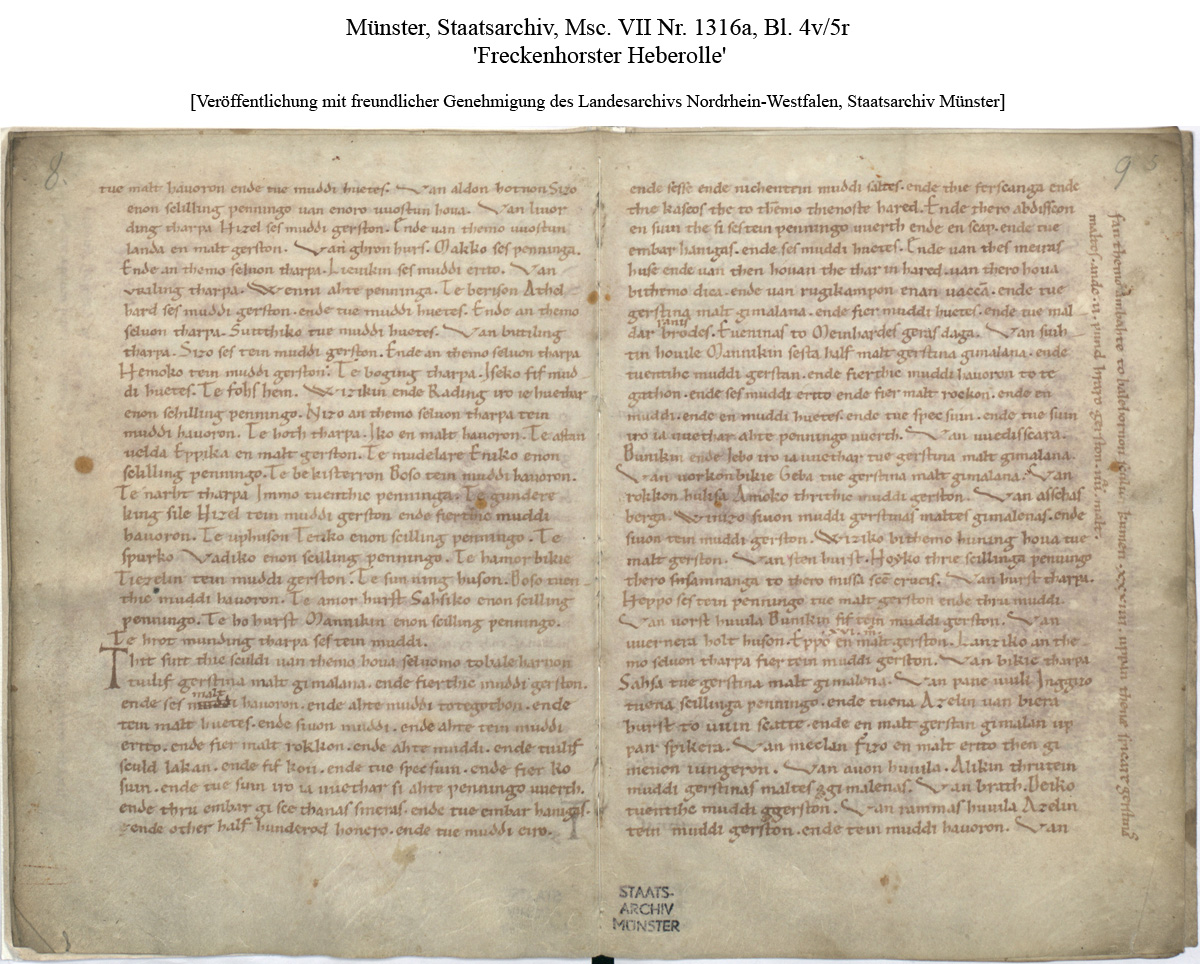 Münster, Staatsarchiv, Msc. VII Nr. 1316a, Bl. 4v/5r
'Freckenhorster Heberolle'
[Veröffentlichung mit freundlicher Genehmigung des Landesarchivs Nordrhein-Westfalen, Staatsarchiv Münster]
8.
tue malt hauoron ende tue muddi huetes. Van aldon botnon Sizo
enon scilling penningo uan enoro uuostun houa. Van liuor
ding tharpa Hizel ses muddi gerston. Ende uan themo uuostun
landa en malt gerston. Van ghronhurs. Makko ses penninga.
Ende an themo seluon tharpa. Lieuikin ses muddi erito. Van
uualing tharpa. Wenni ahte penninga. Te berison Athel
hard ses muddi gerston. ende tue muddi huetes. Ende an themo
seluon tharpa. Sutthiko tue muddi huetes. Van butiling
tharpa. Sizo ses tein muddi gerston. Ende an themo seluon tharpa
Hemoko tein muddi gerston. Te boging tharpa. Iseko fif mud
di huetes. Te fohs hem. Wizikin ende Rading iro ie huethar
enon schilling penningo. Nizo an themo seluon tharpa tein
muddi hauoron. Te hoth tharpa. Iko en malt hauoron. Te astan
uelda Eppika en malt gerston. Te mudelare Eniko enon
scilling penningo. Te bekisterron Boso tein muddi hauoron.
Te narht tharpa Immo tuenthic penninga. Te gundere
king sile Hizel tein muddi gerston ende fierthic muddi
hauoron. Te uphuson Teziko enon scilling penningo. Te
spurko Vadiko enon scilling penningo. Te hamor bikie
Tiezelin tein muddi gerston. Te sunning huson. Boso tuen
thic muddi hauoron. Te amor hurst Sahsiko enon scilling
penningo. Te ho hurst Mannikin enon scilling penningo.
Te hrot munding tharpa ses tein muddi.
Thit sint thie sculdi uan themo houa seluomo to bale harnon
tuilif gerstina malt gimalana. ende fierthic muddi gerston.
malt
ende ses muddi hauoron. ende ahte muddi to tegothon. ende
tein malt huetes. ende siuon muddi. ende ahte tein muddi
erito. ende fier malt rokkon. ende ahte muddi. ende tuilif
sculd lakan. ende fif kon. ende tue specsuin. ende fier ko
suin. ende tue suin iro ia uuethar si ahte penningo uuerth.
ende thru embar gi scethanas smeras. ende tue embar hanigas.
ende other half hunderod honero. ende tue muddi eiro.
9 5
ende sesse ende nichentein muddi saltes. ende thie ferscanga ende
thie kascos the to themo thienoste hared. Ende thero abdisscon
en suin the si ses tein penningo uuerth ende en scap. ende tue
embar hanigas. ende ses muddi huetes. Ende van thes meiras
huse ende van then houan the thar in hared. van thero houa
bithemo dica. ende van rugikampon enan vaccam. ende tue
gerstina malt gimalana. ende fier muddi huetes. ende tue mal
dar brodes. Eueninas to Meinhardes geras daga. Van suih
tin houile Mannikin sesta half malt gerstina gimalana. ende
tuentihe muddi gerstan. ende fierthic muddi hauoron to te
gathon. ende ses muddi erito ende fier malt rockon. ende en
muddi. ende en muddi huetes. ende tue specsuin. ende tue suin
iro ia uuethar ahte penningo uuerth. Van uuedisscara.
Bunikin ende Iebo iro ia uuethar tue gerstina malt gimalana.
Van uorkonbikie Geba tue gerstina malt gimalana. Van
rokkon hulisa Amoko thrithic muddi gerston. Van asschas
berga. Winizo siuon muddi gerstinas maltes gimalenas. ende
siuon tein muddi gerston. Wiziko bithemo huning houa tue
malt gerston. Van sten hurst. Hoyko thrie scillinga penningo
thero susamnanga to thero missa sce crucis. Van hurst tharpa.
Heppo ses tein penningo tue malt gerston ende thru muddi.
Van uorst huuila Bunikin fif tein muddi gerston. Van
uuernera holt huson. Eppo en malt gerston. Lanziko an the
mo seluon tharpa fier tein muddi gerston. Van bikie tharpa
Sahsa tue gerstina malt gimalena. Van pane uuili Inggizo
tuena scillinga penningo. ende tuena Azelin uan biera
hurst to uuin scatte. ende en malt gerstan gimalan up
pan spikera. Van meclan Fizo en malt erito then gi
menon iungeron. Van auon huuila. Alikin thrutein
muddi gerstinas maltes gimalenas. Van brath. Deiko
tuentihe muddi ggerston. Van rammas huuila Azelin
tein muddi gerston. ende tein muddi hauoron. Van
STAATS-
ARCHIV
MÜNSTER